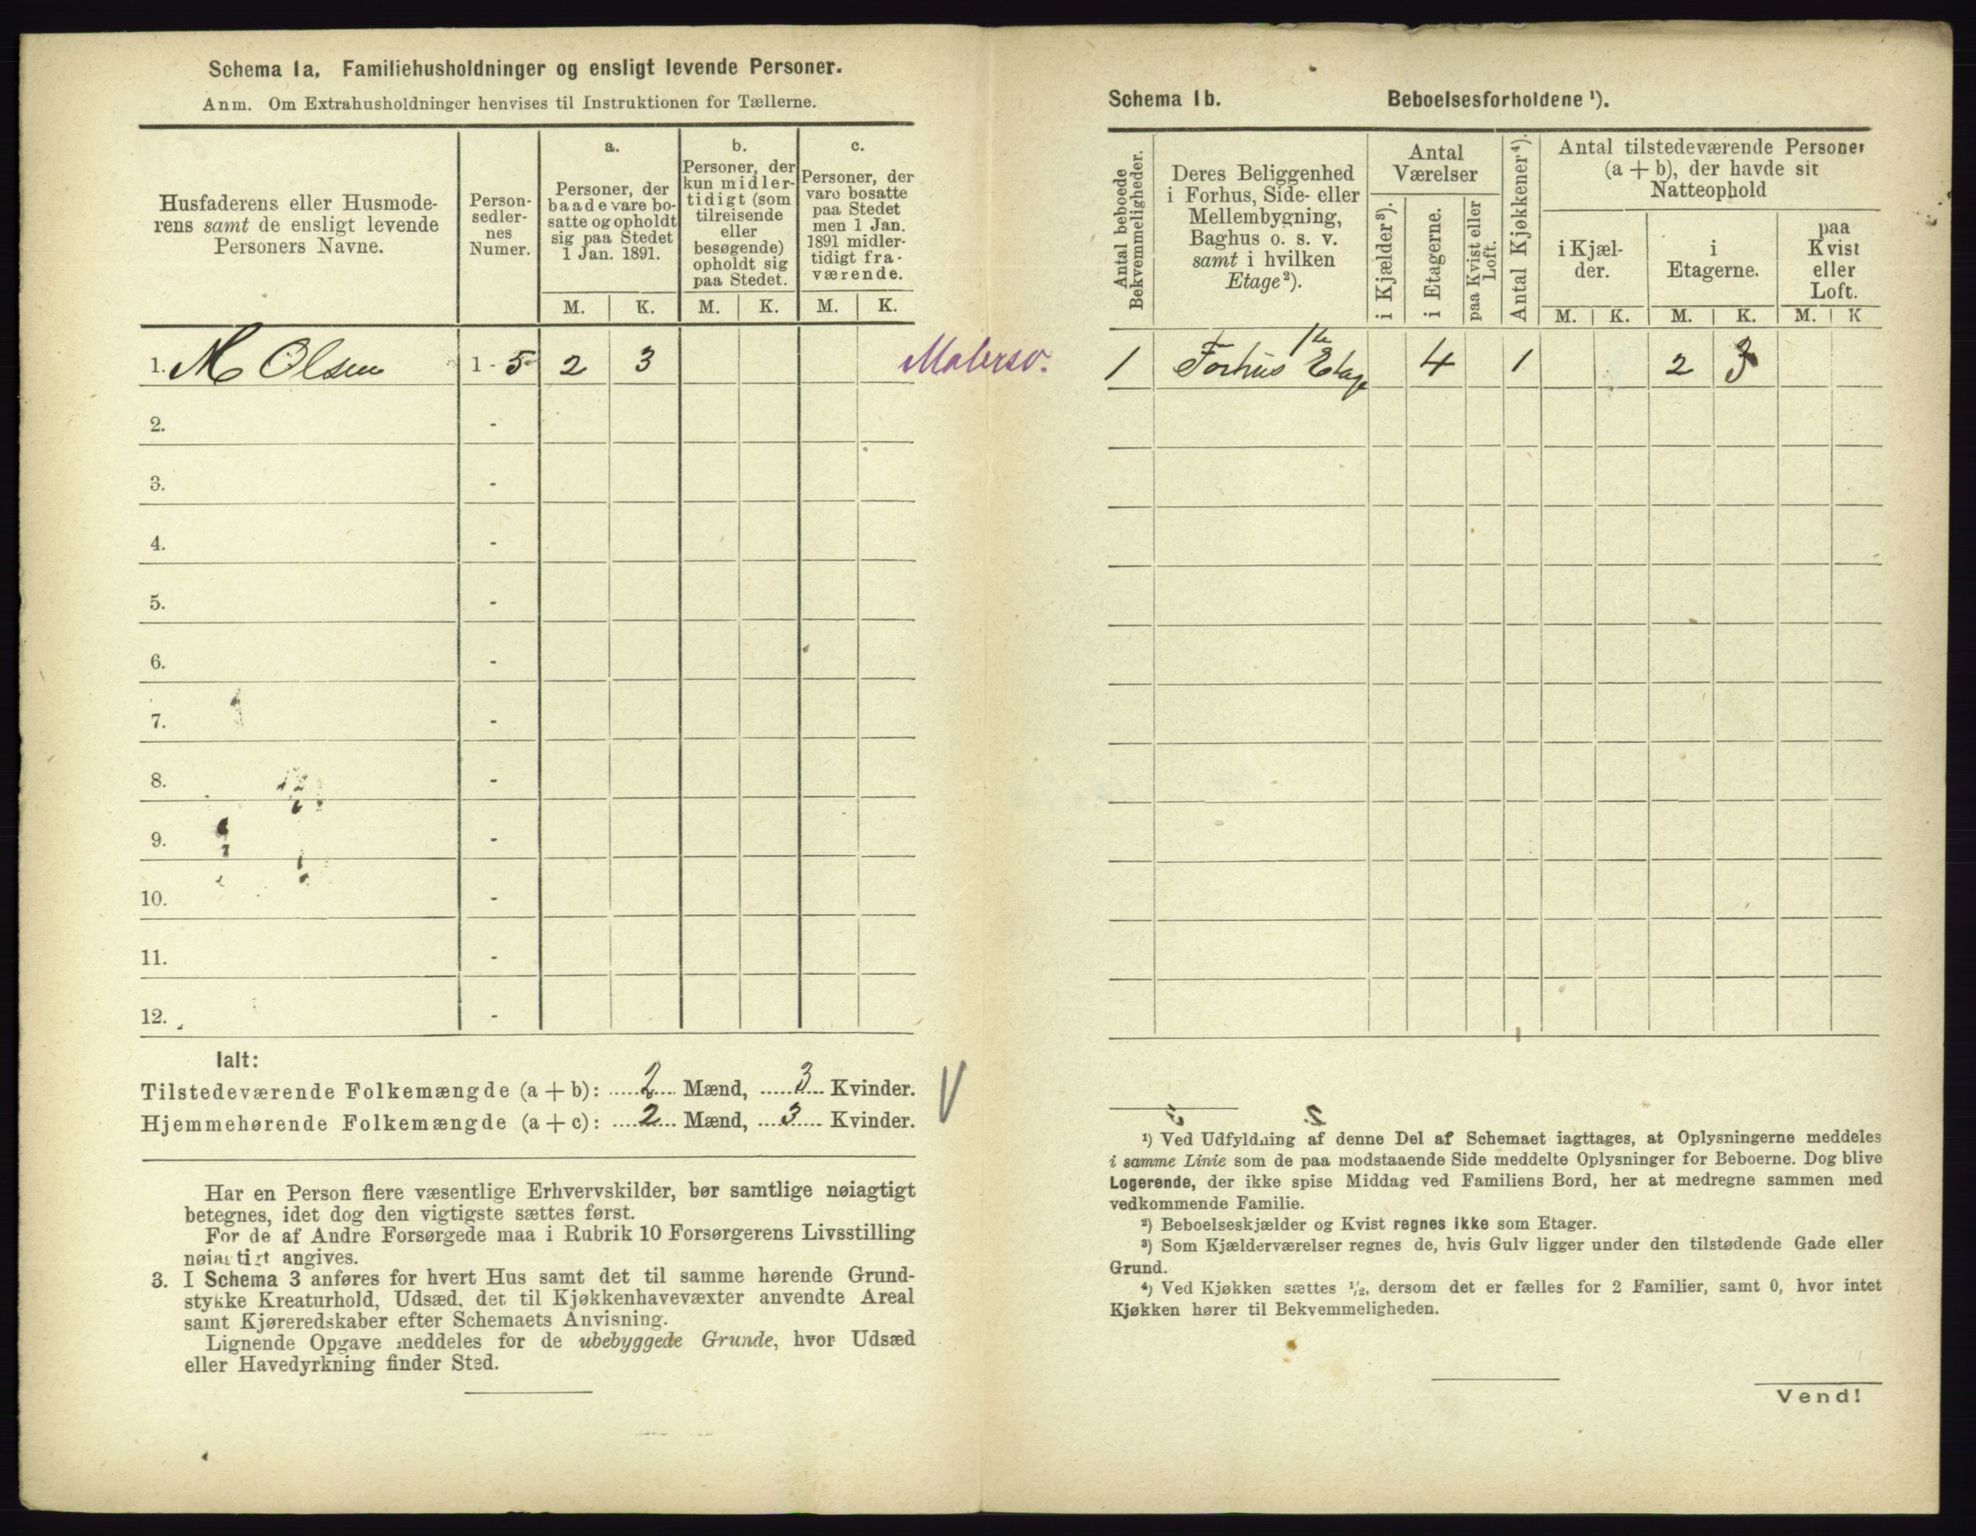 Schema 1a. Familiehusholdninger og ensligt levende Personer.
Anm. Om Extrahusholdninger henvises til Instruktionen for Tællerne.
Husfaderens eller Husmode-
rens samt de ensligt levende
Personers Navne.
Person-
sedler-
nes
Numer.
a.
Personer, der
baade vare bo-
satte og opholdt
sig paa Stedet
1 Jan. 1891.
b.
Personer, der
kun midler-
tidigt (som
tilreisende
eller
besøgende)
opholdt sig
paa Stedet.
c.
Personer, der
vare bosatte
paa Stedet
men 1 Jan.
1891 midler-
tidigt fra-
værende.
M. K. M. K. M. K.
1. M Olsen 1 - 5 2 3
2. -
3. -
4. -
5. -
6. -
7. -
8. -
9. -
10. -
11. -
12. -
Ialt:
Tilstedeværende Folkemængde (a + b): 2 Mænd, 3 Kvinder.
Hjemmehørende Folkemængde (a + c): 2 Mænd, 3 Kvinder.
Har en Person flere væsentlige Erhvervskilder, bør samtlige nøiagtigt
betegnes, idet dog den vigtigste sættes først.
For de af Andre Forsørgede maa i Rubrik 10 Forsørgerens Livsstilling
nøiagtigt angives.
3. I Schema 3 anføres for hvert Hus samt det til samme hørende Grund-
stykke Kreaturhold, Udsæd, det til Kjøkkenhavevæxter anvendte Areal
samt Kjøreredskaber efter Schemaets Anvisning.
Lignende Opgave meddeles for de ubebyggede Grunde, hvor Udsæd
eller Havedyrkning finder Sted.
Schema 1b. Beboelsesforholdene ¹).
Antal beboede
Bekvemmeligheder.
Deres Beliggenhed
i Forhus, Side- eller
Mellembygning,
Baghus o. s. v.
samt i hvilken
Etage²).
Antal
Værelser
i Kjælder³).
i Etagerne.
paa Kvist eller
Loft.
Antal Kjøkkener⁴).
Antal tilstedeværende Personer
(a + b), der havde sit
Natteophold
i Kjæl-
der.
i
Etagerne.
paa
Kvist
eller
Loft.
M. K. M. K. M. K
1 Forhus 1te Etage 4 1 2 3
¹) Ved Udfyldning af denne Del af Schemaet iagttages, at Oplysningerne meddeles
i samme Linie som de paa modstaaende Side meddelte Oplysninger for Beboerne. Dog blive
Logerende, der ikke spise Middag ved Familiens Bord, her at medregne sammen med
vedkommende Familie.
²) Beboelseskjælder og Kvist regnes ikke som Etager.
³) Som Kjælderværelser regnes de, hvis Gulv ligger under den tilstødende Gade eller
Grund.
⁴) Ved Kjøkken sættes ½, dersom det er fælles for 2 Familier, samt 0, hvor intet
Kjøkken hører til Bekvemmeligheden.
Vend!